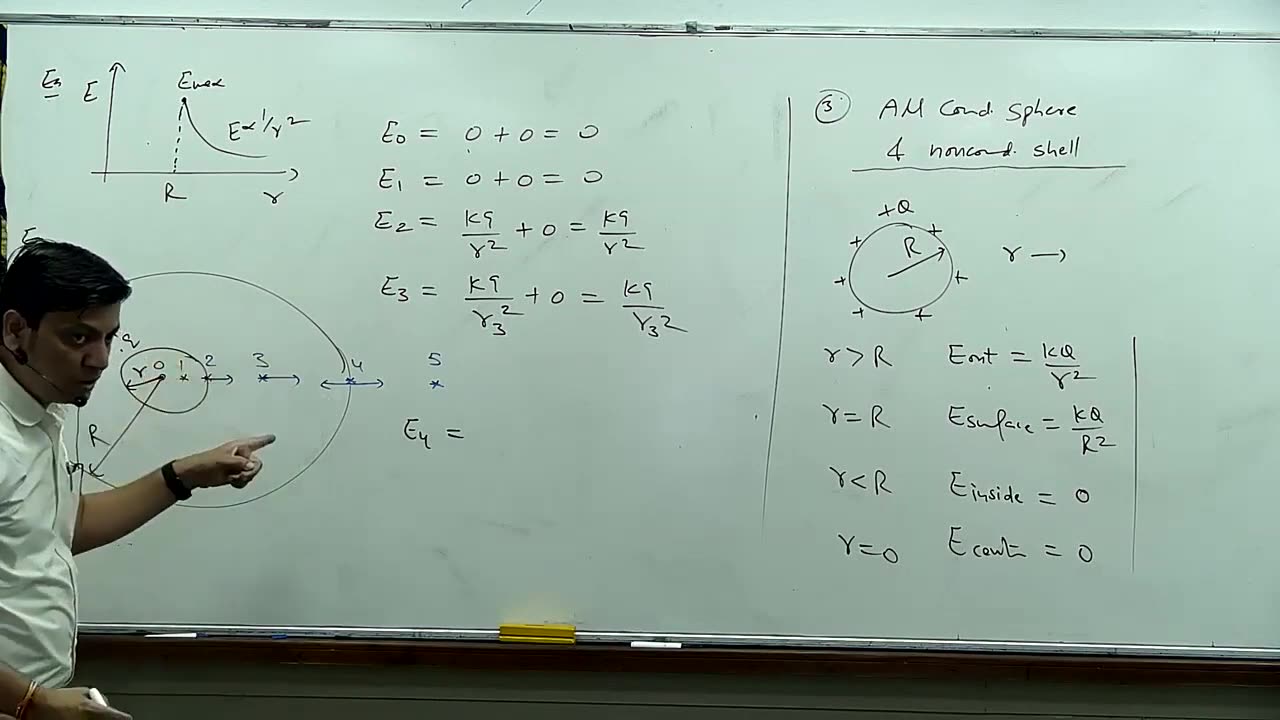 E
Emax
E∝1/r²
R
r
E₀ = 0 + 0 = 0
E₁ = 0 + 0 = 0
E₂ = kq/r² + 0 = kq/r²
E₃ = kq/r₃² + 0 = kq/r₃²
q
r 0 1 2 3 4 5
R
E₄ =
③ All Cond. sphere
& noncond. shell
+Q
+ + + + + +
R
r →
r > R Eout = kQ/r²
r = R Esurface = kQ/R²
r < R Einside = 0
r = 0 Ecent = 0